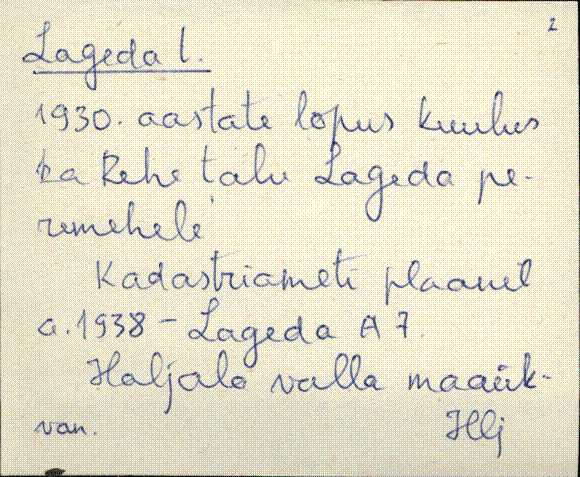 2
Lageda t.
1930. aastate lõpus kuulus
ka Rehe talu Lageda pe-
remehele
Kadastriameti plaanil
a. 1938 - Lageda A 7.
Haljala valla maaük-
van.
Hlj